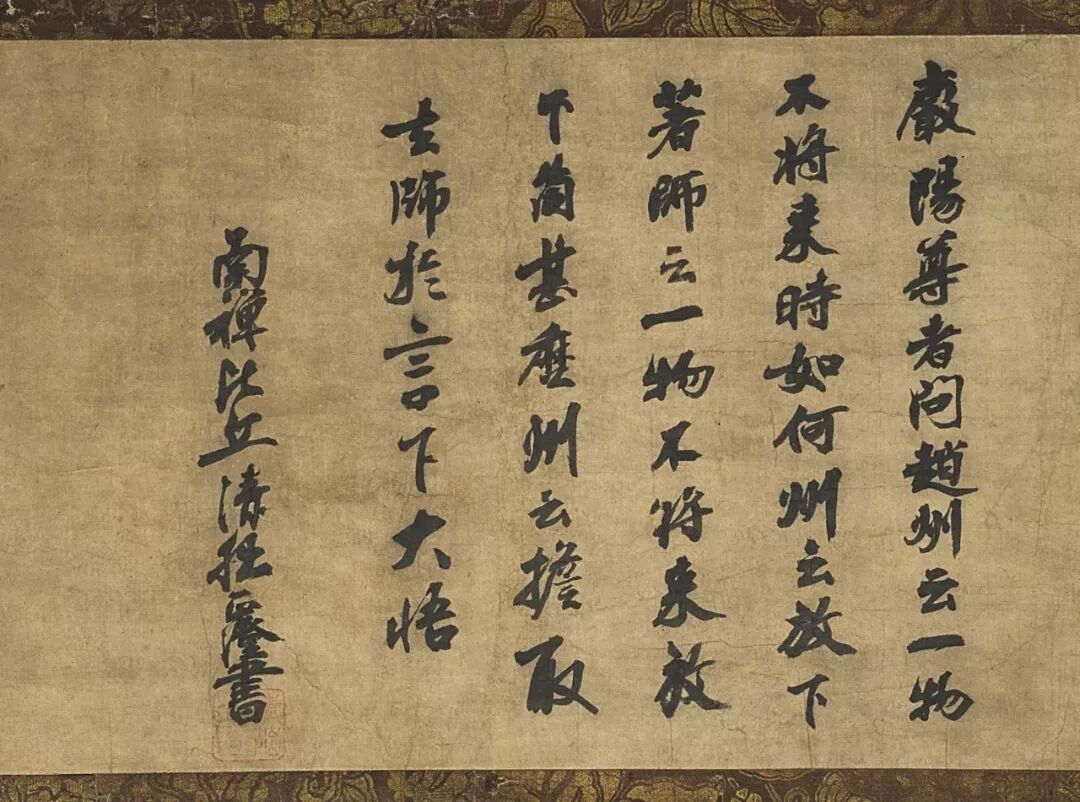 嚴陽尊者問趙州云一物
不將来時如何州云放下
著師云一物不将来放
下箇甚麽州云擔取
去師於言下大悟
南禅比丘清拙正澄書